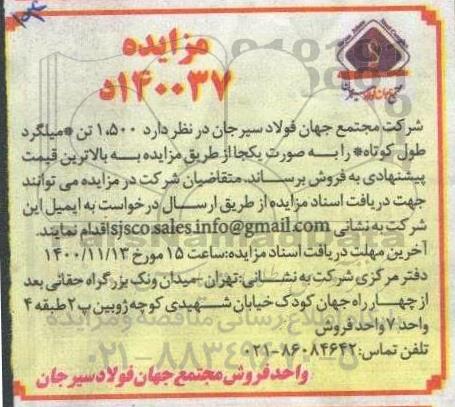 مزایده
۱۴۰۰۳۷د
شرکت مجتمع جهان فولاد سیرجان در نظر دارد ۱،۵۰۰ تن *میلگرد
طول کوتاه* را به صورت یکجا از طریق مزایده به بالاترین قیمت
پیشنهادی به فروش برساند. متقاضیان شرکت در مزایده می توانند
جهت دریافت اسناد مزایده از طریق ارسال درخواست به ایمیل این
شرکت به نشانی sjsco.sales.info@gmail.com اقدام نمایند.
آخرین مهلت دریافت اسناد مزایده: ساعت ۱۵ مورخ ۱۴۰۰/۱۱/۱۳
دفتر مرکزی شرکت به نشانی: تهران -میدان ونک بزرگراه حقانی بعد
از چهارراه جهان کودک خیابان شهیدی کوچه ژوبین پ ۲ طبقه ۴
واحد ۷ واحد فروش
تلفن تماس: ۸۶۰۸۴۶۴۲-۰۲۱
واحد فروش مجتمع جهان فولاد سیرجان